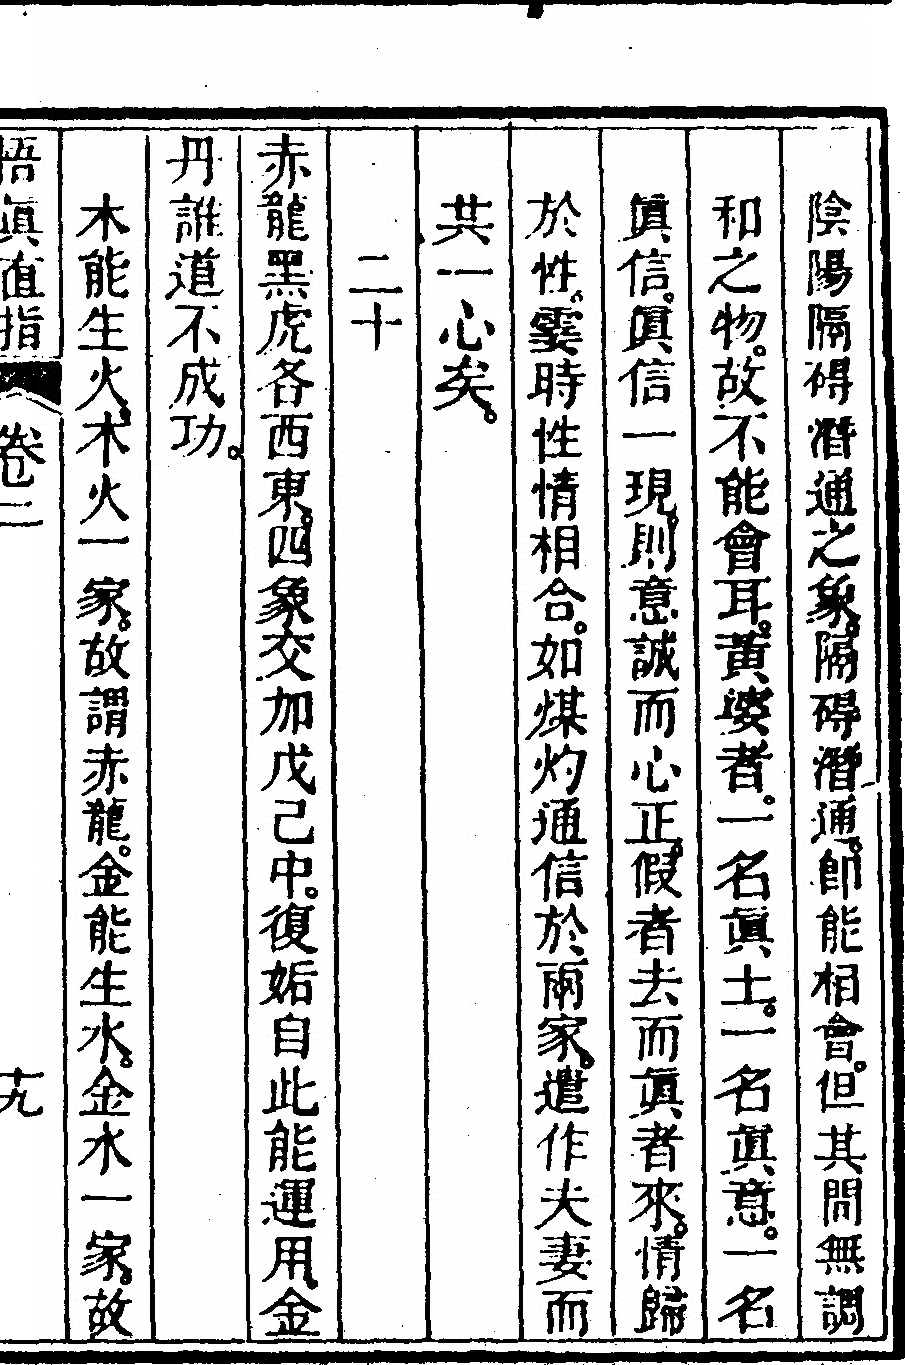 陰陽隔碍潛通之象。隔碍潛通。卽能相會。但其間無調
和之物。故不能會耳。黃婆者。一名眞土。一名眞意。一名
眞信。眞信一現。則意誠而心正。假者去而眞者來。情歸
於性。霎時性情相合。如媒灼通信於兩家。遣作夫妻而
共一心矣。
二十
赤龍黑虎各西東。四象交加戊己中。復姤自此能運用。金
丹誰道不成功。
木能生火。木火一家。故謂赤龍。金能生水。金水一家。故
悟眞直指 卷二 十九